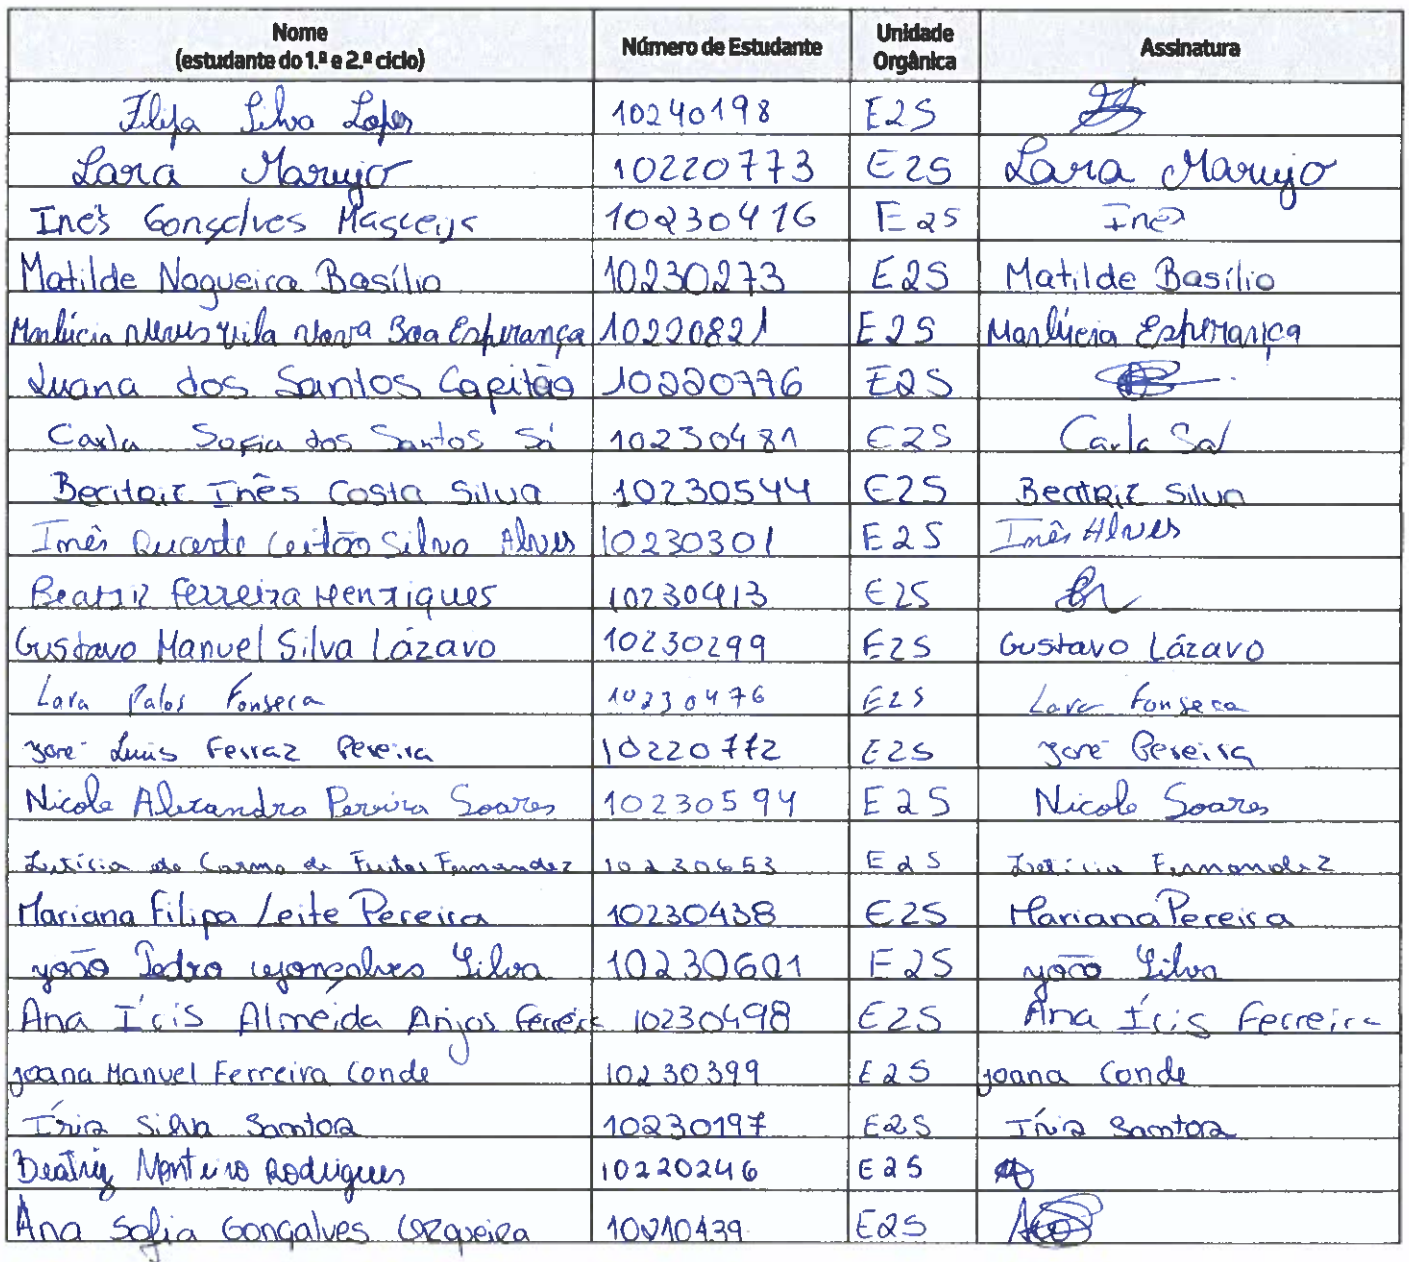 Nome Número de Estudante Unidade Assinatura
(estudante do 1.º e 2.º ciclo) Orgânica
Filipa Silva Lopes 10240198 E2S
Lara Marujo 10220773 E2S Lara Marujo
Inês Gonçalves 10230416 E2S Inês
Matilde Nogueira Basílio 10230273 E2S Matilde Basílio
Marlúcia Neves Vila Nova Boa Esperança 10220821 E2S Marlúcia Esperança
Luana dos Santos Capitão 10220776 E2S
Carla Sofia dos Santos Sá 10230481 E2S Carla Sá
Beatriz Inês Costa Silva 10230544 E2S Beatriz Silva
Inês Leitão Silva Alves 10230301 E2S Inês Alves
Beatriz Ferreira Henriques 10230413 E2S
Gustavo Manuel Silva Lázaro 10230299 E2S Gustavo Lázaro
Lara Palos Fonseca 10230476 E2S Lara Fonseca
José Luis Ferraz Pereira 10220772 E2S José Pereira
Nicole Alexandra Pereira Soares 10230594 E2S Nicole Soares
Letícia do Carmo de Freitas Fernandez 10230653 E2S Letícia Fernandez
Mariana Filipa Leite Pereira 10230438 E2S Mariana Pereira
João Pedro Gonçalves Silva 10230601 E2S João Silva
Ana Íris Almeida Anjos Ferreira 10230498 E2S Ana Íris Ferreira
Joana Manuel Ferreira Conde 10230399 E2S Joana Conde
Íris Silva Santos 10230197 E2S Íris Santos
Beatriz Monteiro Rodrigues 10220246 E2S
Ana Sofia Gonçalves Cerqueira 10210439 E2S